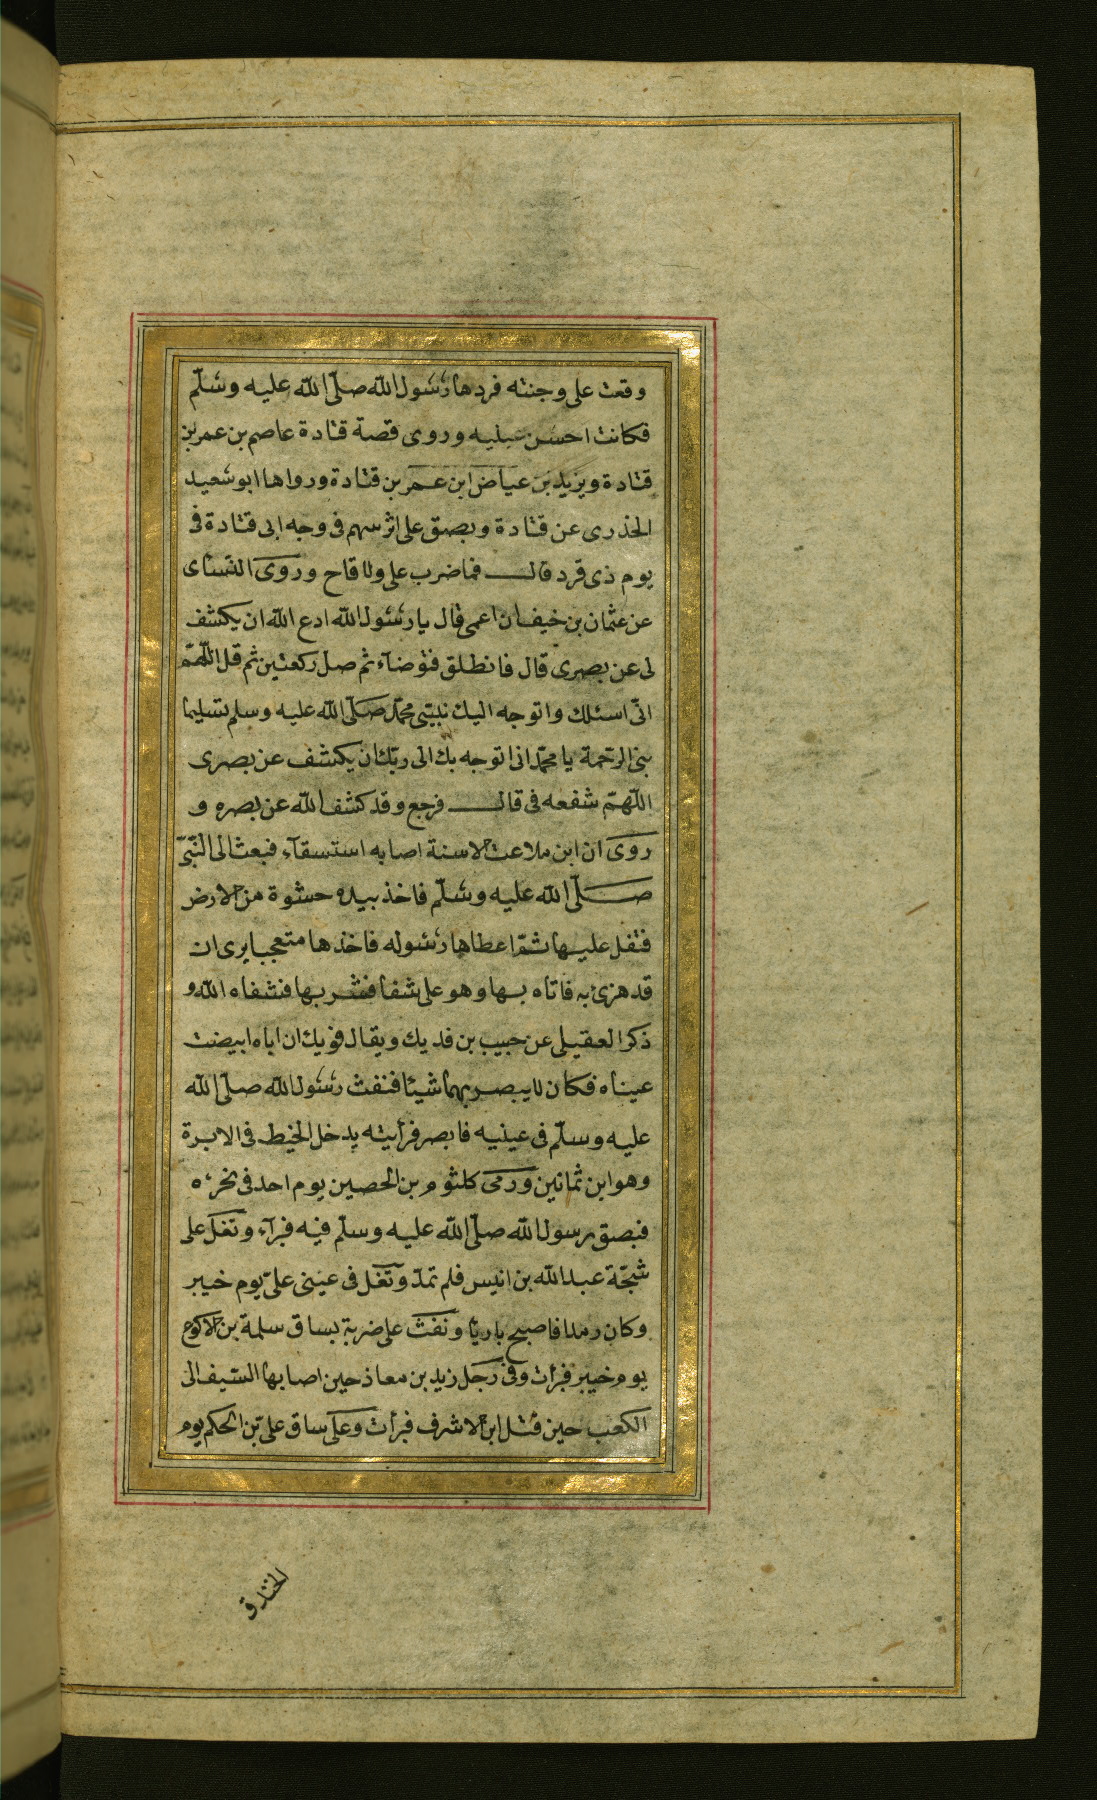 وقعت على وجنته فردها رسول الله صلّى الله عليه وسلّم
فكانت احسن عينيه وروى قصة قتادة عاصم بن عمر بن
قتادة ويزيد بن عياض ابن عمر بن قتادة ورواها ابو سعيد
الخذرى عن قتادة وبصق على اثر سهم فى وجه ابى قتادة فى
يوم ذى قرد قال فما ضرب على ولا قاح وروى النسائ
عن عثمان بن خيف ان اعمى قال يا رسول الله ادع الله ان يكشف
لى عن بصرى قال فانطلق فتوضاء ثم صل ركعتين ثم قل اللّهمّ
انّى اسئلك واتوجه اليك نبيّى محمّد صلّى الله عليه وسلم تسليما
نبى الرحمة يا محمّد انى اتوجه بك الى ربّك ان يكشف عن بصرى
اللّهمّ شفعه فى قال فرجع وقد كشف الله عن بصره و
روى ان ابن ملاعب الاسنة اصابه استسقآء فبعث الى النّبّى
صلّى الله عليه وسلّم فاخذ بيده حشوة من الارض
فتفل عليها ثمّ اعطاها رسوله فاخذها متعجبا يرى ان
قد هزئ به فاتاه بها وهو على شفا فشربها فشفاه الله و
ذكر العقيلى عن حبيب بن فديك ويقال فويك ان اباه ابيضت
عيناه فكان لا يبصر بهما شيئا فنفث رسول الله صلّى الله
عليه وسلّم فى عينيه فابصر فرأيته يدخل الخيط فى الابرة
وهو ابن ثمانين ورمى كلثوم بن الحصين يوم احد فى نحره
فبصق رسول الله صلّى الله عليه وسلّم فيه فبرآء وتفل على
شجّة عبد الله بن انيس فلم تمدّ وتفل فى عينى علىّ يوم خيبر
وكان رمدا فاصبح باريًا ونفث على ضربة بساق سلمة بن الاكوع
يوم خيبر فبرأت وفى رجل زيد بن معاذ حين اصابها السّيف الى
الكعب حين قتل ابن الاشرف فبرأت وعلى ساق علىّ بن الحكم يوم
الخندق